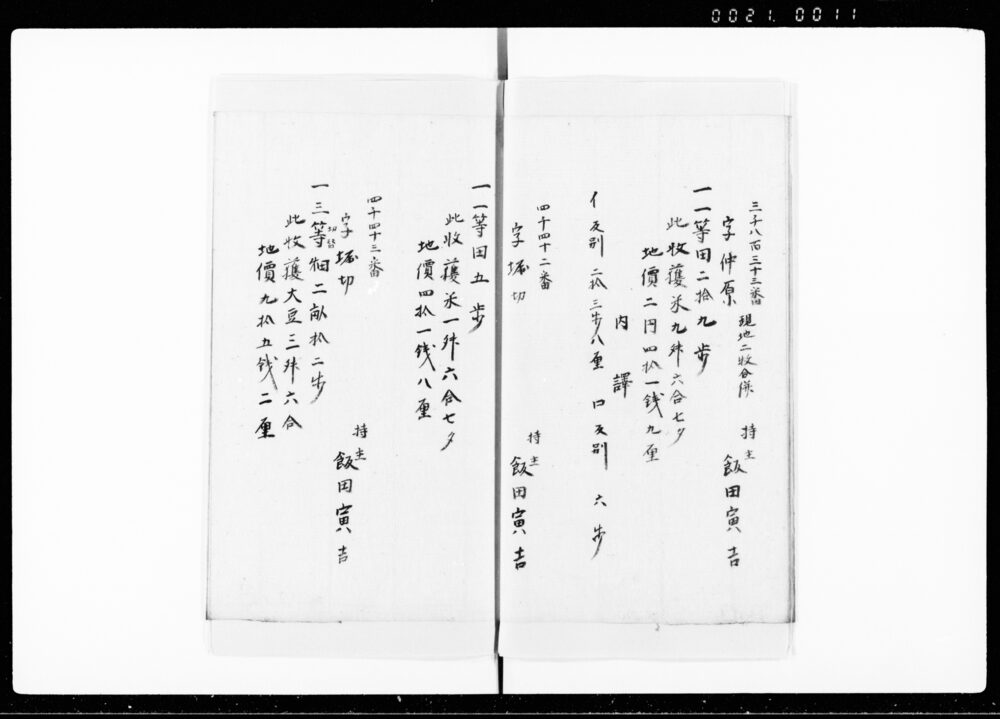 0021. 0011
三千八百三十三番 現地二枚合併
字仲原 持主 飯田寅吉
一一等田二拾九歩
此收穫米九舛六合七夕
地價二円四拾一銭九厘
内譯
イ反別 二拾三歩八厘 口反別 六歩
四千四十二番
字堀切 持主 飯田寅吉
一一等田五歩
此收穫米一舛六合七夕
地價四拾一銭八厘
四千四十三番
字堀切 持主 飯田寅吉
一三等切替畑二畝拾二歩
此收穫大豆三舛六合
地價九拾五銭二厘